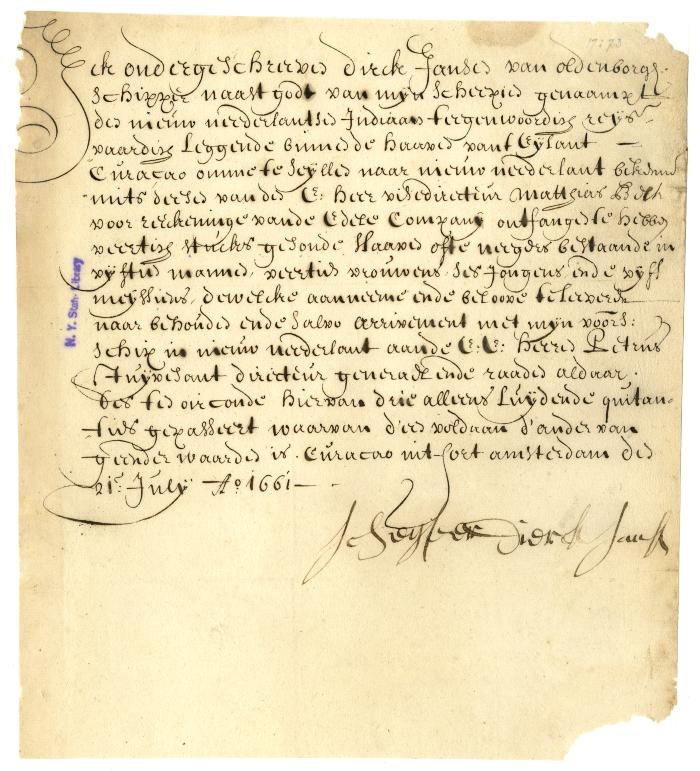 17:73
Ick ondergeschreven Dirck Jansen van oldenborgh
Schipper naast godt van myn Scheepien genaampt
den nieuw neederlantsen Indiaan teegenwoordich reys
vaardich Leggende binnen de haaven vant Eylant
Curacao omme te Seyllen naar nieuw neederlant bekenne
mits deesen van den E: heer visedirecteur Matthias Beck
voor reeckeninge vande Edele Company ontfangen te hebben
veertich stucks gesonde slaaven ofte neegers bestaande in
vyftien mannen, veertien vrouwens, ses Jongens ende vyff
meyssiens, dewelcke aanneeme ende beloove te leveren
naar behouden ende salvo arrivement met myn voors:
Schip in nieuw neederlant aande E: E: heeren Petrus
Stuyvesant directeur generael ende raaden aldaar.
Des ten oirconde hiervan drie alleens Luydende quitan-
tien gepasseert waarvan d'een voldaan d'ander van
geender waarden is. Curacao int fort amsterdam den
21: July Ao 1661
Schipper Dierck Jansen
N. Y. State Library